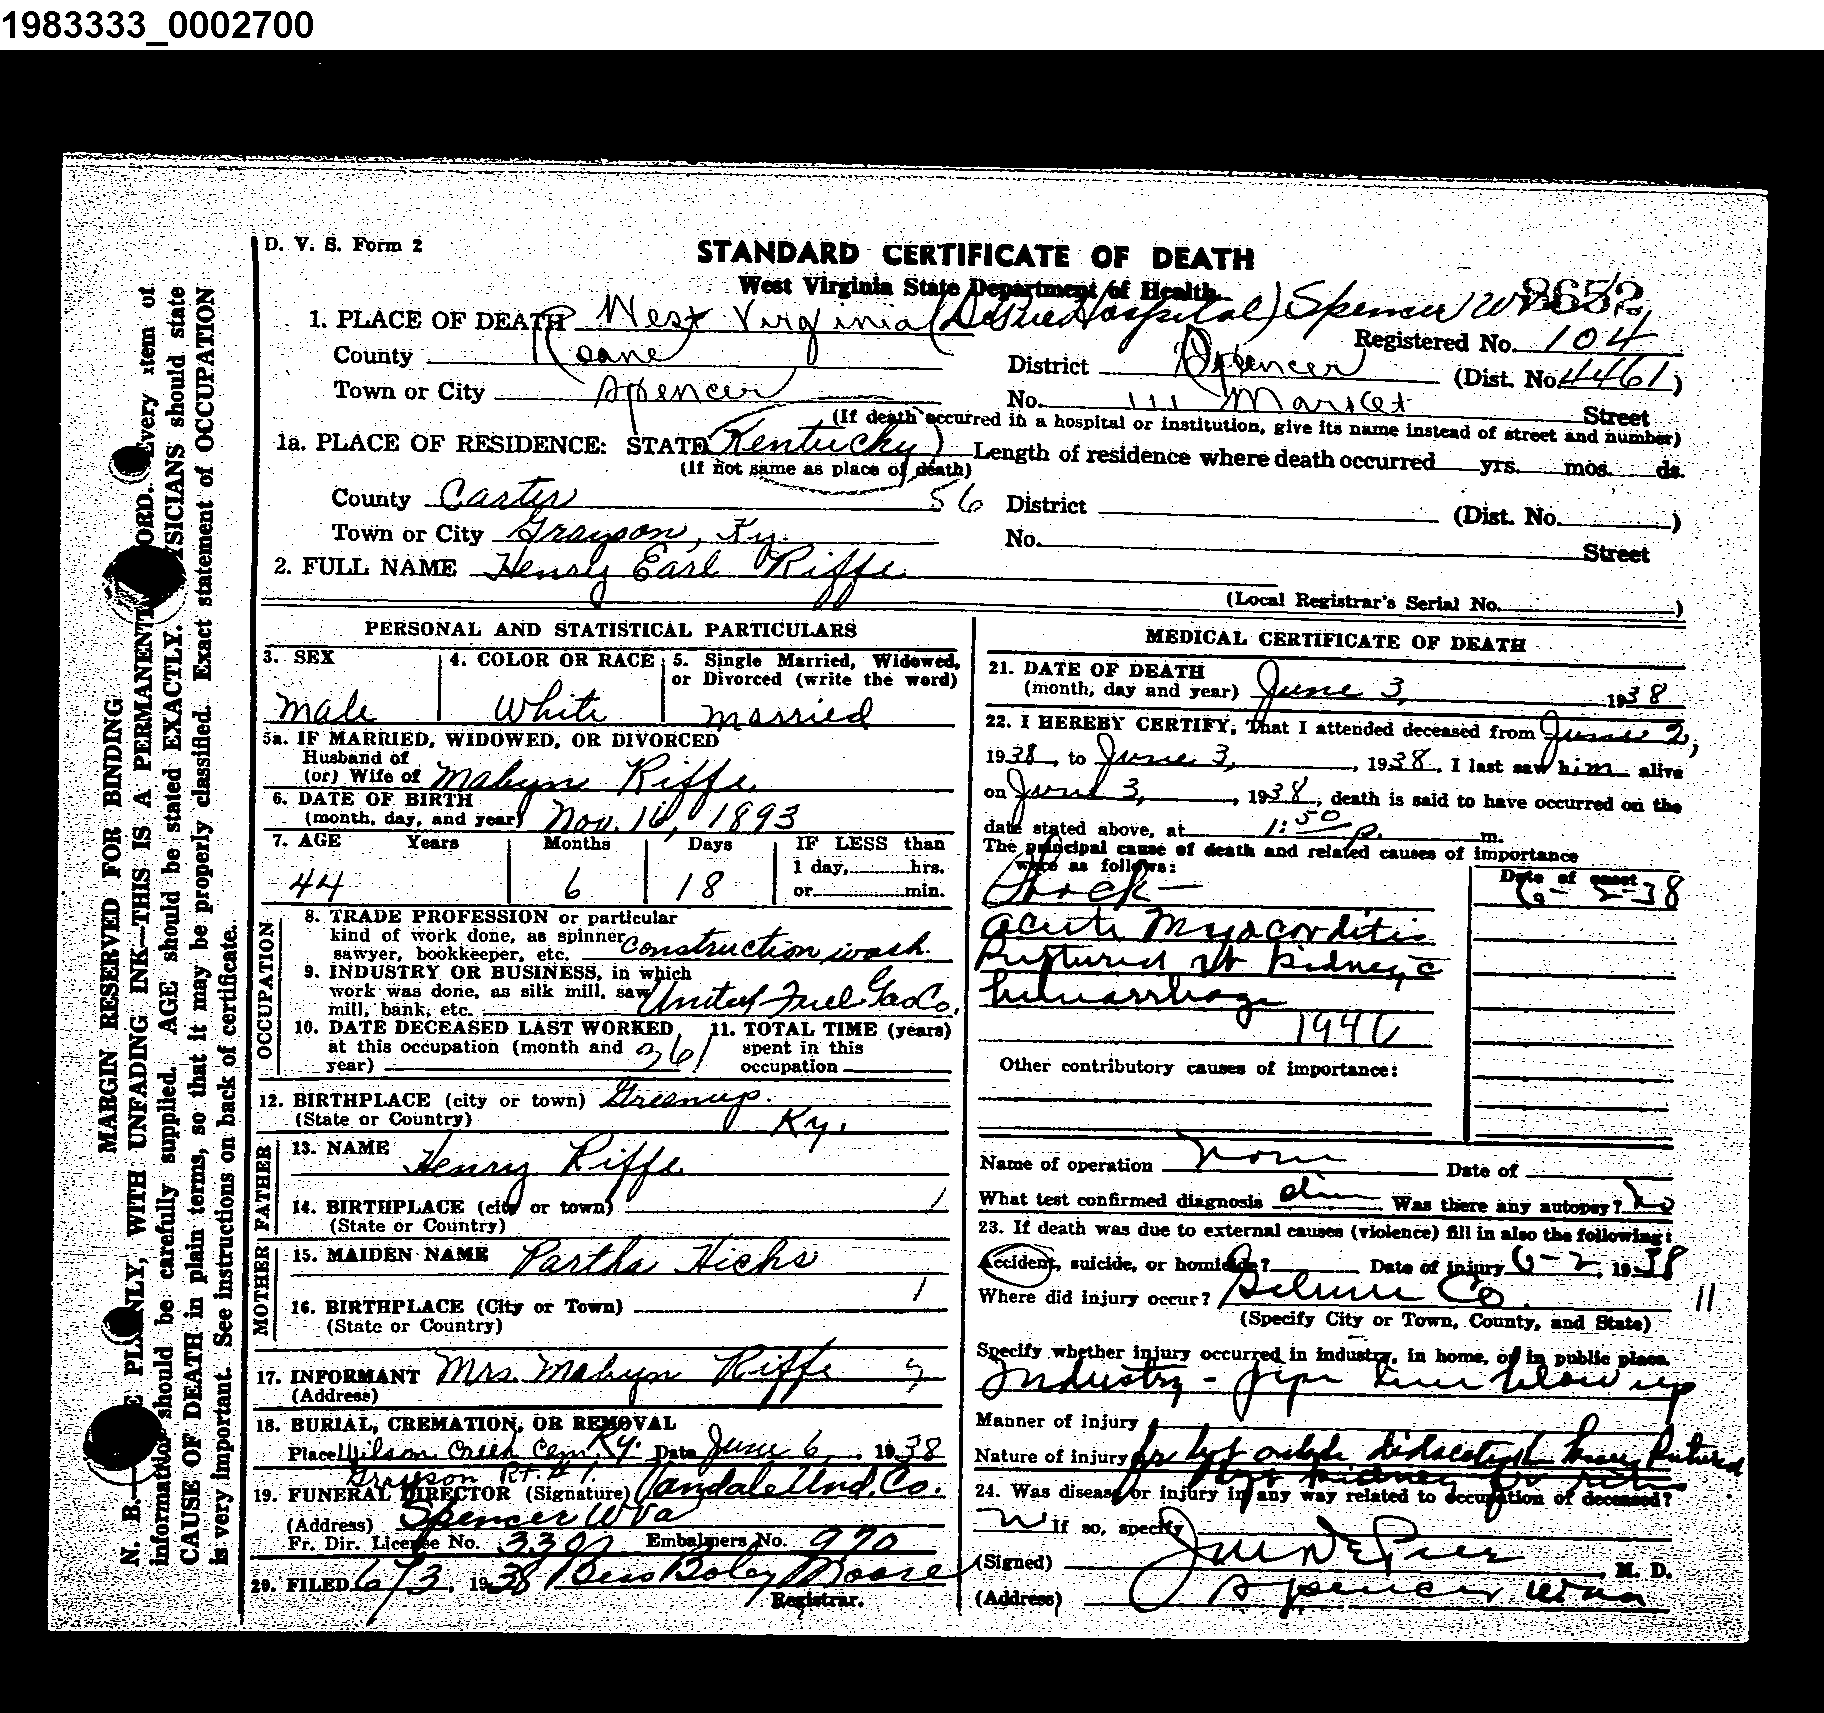 1983333_0002700
D. V. S. Form 2
STANDARD CERTIFICATE OF DEATH
West Virginia State Department of Health
8652
1. PLACE OF DEATH West Virginia (DePue Hospital) Spencer W Va.
Registered No. 104
County Roane District Spencer (Dist. No. 4461)
Town or City Spencer No. 111 Market Street
(If death occurred in a hospital or institution, give its name instead of street and number)
1a. PLACE OF RESIDENCE: STATE Kentucky Length of residence where death occurred yrs. mos. ds.
(If not same as place of death)
County Carter 56 District (Dist. No. )
Town or City Grayson, Ky. No. Street
2. FULL NAME Henry Earl Riffe
(Local Registrar's Serial No. )
PERSONAL AND STATISTICAL PARTICULARS
3. SEX 4. COLOR OR RACE 5. Single Married, Widowed, or Divorced (write the word)
Male White Married
5a. IF MARRIED, WIDOWED, OR DIVORCED
Husband of
(or) Wife of Mabyn Riffe
6. DATE OF BIRTH
(month, day, and year) Nov. 16, 1893
7. AGE Years Months Days IF LESS than
1 day, hrs.
44 6 18 or min.
OCCUPATION
8. TRADE PROFESSION or particular
kind of work done, as spinner
sawyer, bookkeeper, etc. Construction work.
9. INDUSTRY OR BUSINESS, in which
work was done, as silk mill, saw
mill, bank, etc. United Fuel Gas Co.
10. DATE DECEASED LAST WORKED
at this occupation (month and
year)
261
11. TOTAL TIME (years)
spent in this
occupation
12. BIRTHPLACE (city or town) Greenup.
(State or Country) Ky.
FATHER
13. NAME Henry Riffe
14. BIRTHPLACE (city or town) 1
(State or Country)
MOTHER
15. MAIDEN NAME Partha Hicks
16. BIRTHPLACE (City or Town) 1
(State or Country)
17. INFORMANT Mrs. Mabyn Riffe
(Address)
18. BURIAL, CREMATION, OR REMOVAL
Place Wilson Creek Cem Ky. Date June 6, 1938
Grayson Rt. # 1.
19. FUNERAL DIRECTOR (Signature) Vandale Und. Co.
(Address) Spencer W Va
Fr. Dir. License No. Embalmers No. 970
20. FILED 6/3, 1938 Bess Boley Moore
Registrar.
MEDICAL CERTIFICATE OF DEATH
21. DATE OF DEATH
(month, day and year) June 3, 1938
22. I HEREBY CERTIFY, That I attended deceased from June 2,
1938, to June 3, 1938, I last saw him alive
on June 3, 1938, death is said to have occurred on the
date stated above, at 1:50 p. m.
The principal cause of death and related causes of importance
were as follows:
Date of onset
Shock - 6-2-38
Acute Myocorditis
Ruptured Rt Kidney, c
hemarrhage
194
Other contributory causes of importance:
Name of operation None Date of
What test confirmed diagnosis Was there any autopsy? No
23. If death was due to external causes (violence) fill in also the following:
Accident, suicide, or homicide? Date of injury 6-2, 1938
Where did injury occur? Co. 11
(Specify City or Town, County, and State)
Specify whether injury occurred in industry, in home, or in public place.
Industry - pipe line blow up
Manner of injury
Nature of injury
24. Was disease or injury in any way related to occupation of deceased?
If so, specify
(Signed) M. D.
(Address) Spencer W Va
MARGIN RESERVED FOR BINDING
N. B.— PLAINLY, WITH UNFADING INK—THIS IS A PERMANENT RECORD. Every item of
information should be carefully supplied. AGE should be stated EXACTLY. PHYSICIANS should state
CAUSE OF DEATH in plain terms, so that it may be properly classified. Exact statement of OCCUPATION
is very important. See instructions on back of certificate.